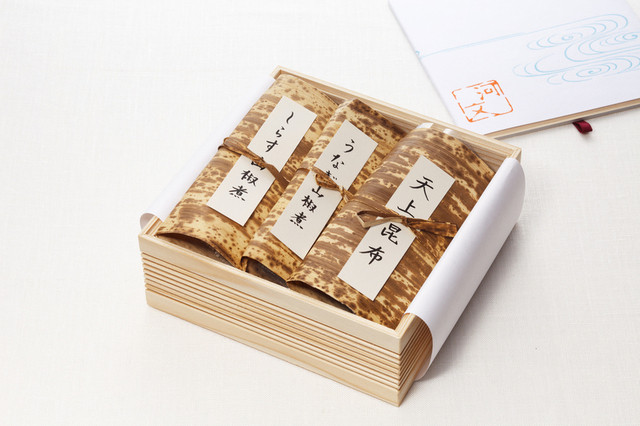 天上昆布
うなぎ山椒煮
しらす山椒煮